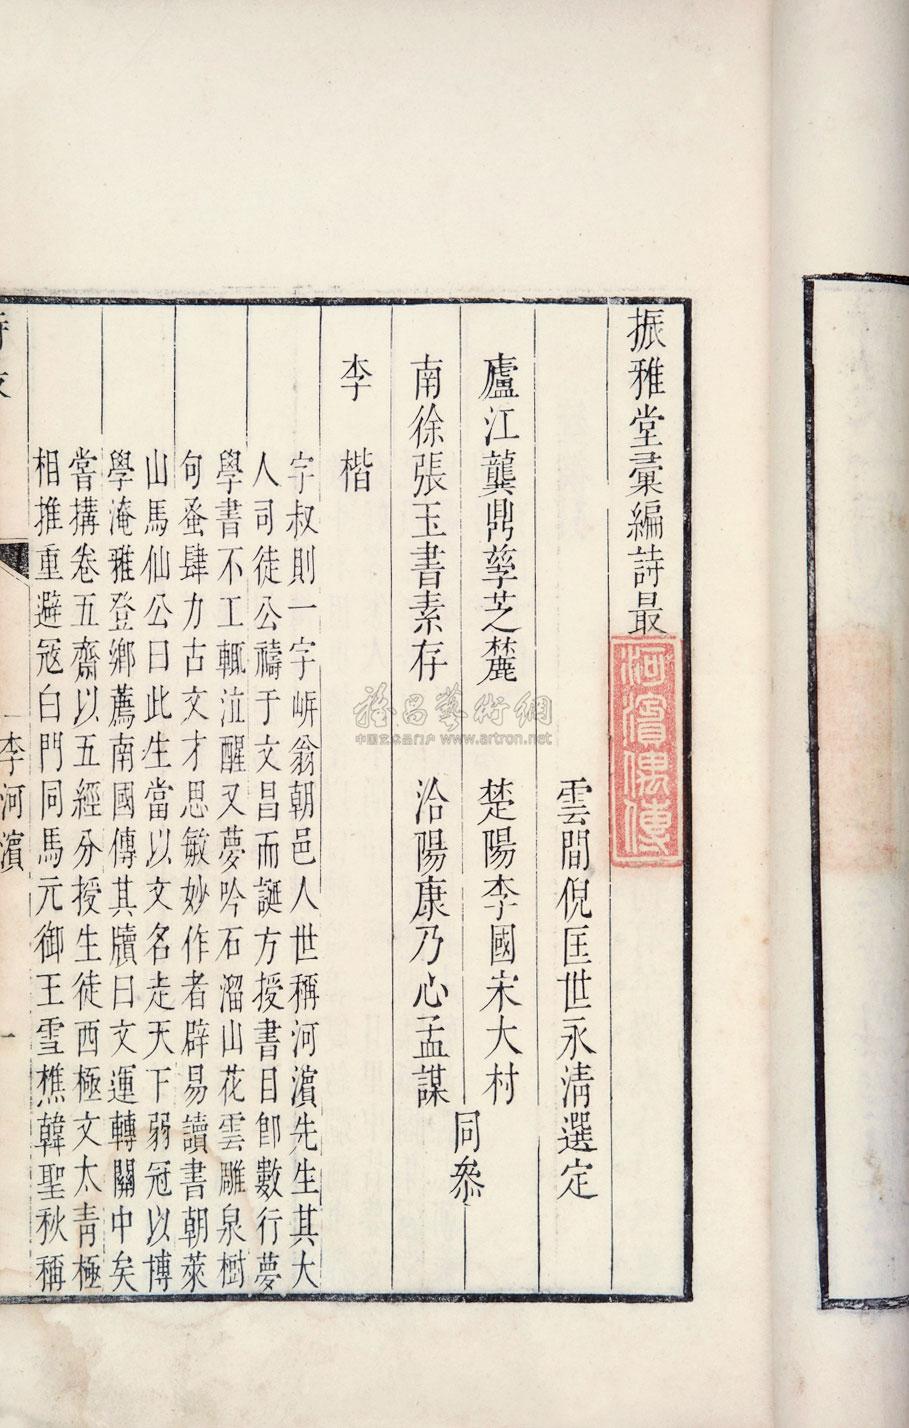 振雅堂彙編詩最
河濱
雲間倪匡世永清選定
廬江龔鼎孳芝麓
楚陽李國宋大村
南徐張玉書素存
洽陽康乃心孟謀
同叅
李楷
字叔則一字岍翁朝邑人世稱河濵先生其大
人司徒公禱于文昌而誕方授書目卽數行夢
學書不工輒泣醒又夢吟石溜山花雲雕泉樹
句蚤肆力古文才思敏妙作者辟易讀書朝萊
山馬仙公曰此生當以文名走天下弱冠以博
學淹雅登鄉薦南國傳其牘曰文運轉關中矣
嘗搆卷五齋以五經分授生徒西極文太青極
相推重避冦白門同馬元御王雪樵韓聖秋稱
李河濵
一
雅昌藝術網
中国艺术品门户 www.artron.net